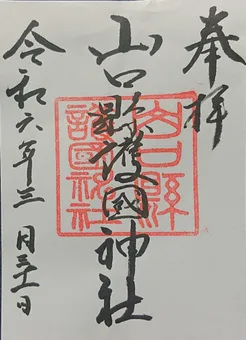 奉拝
山口縣護國神社
山口縣護國神社
令和六年三月三十一日